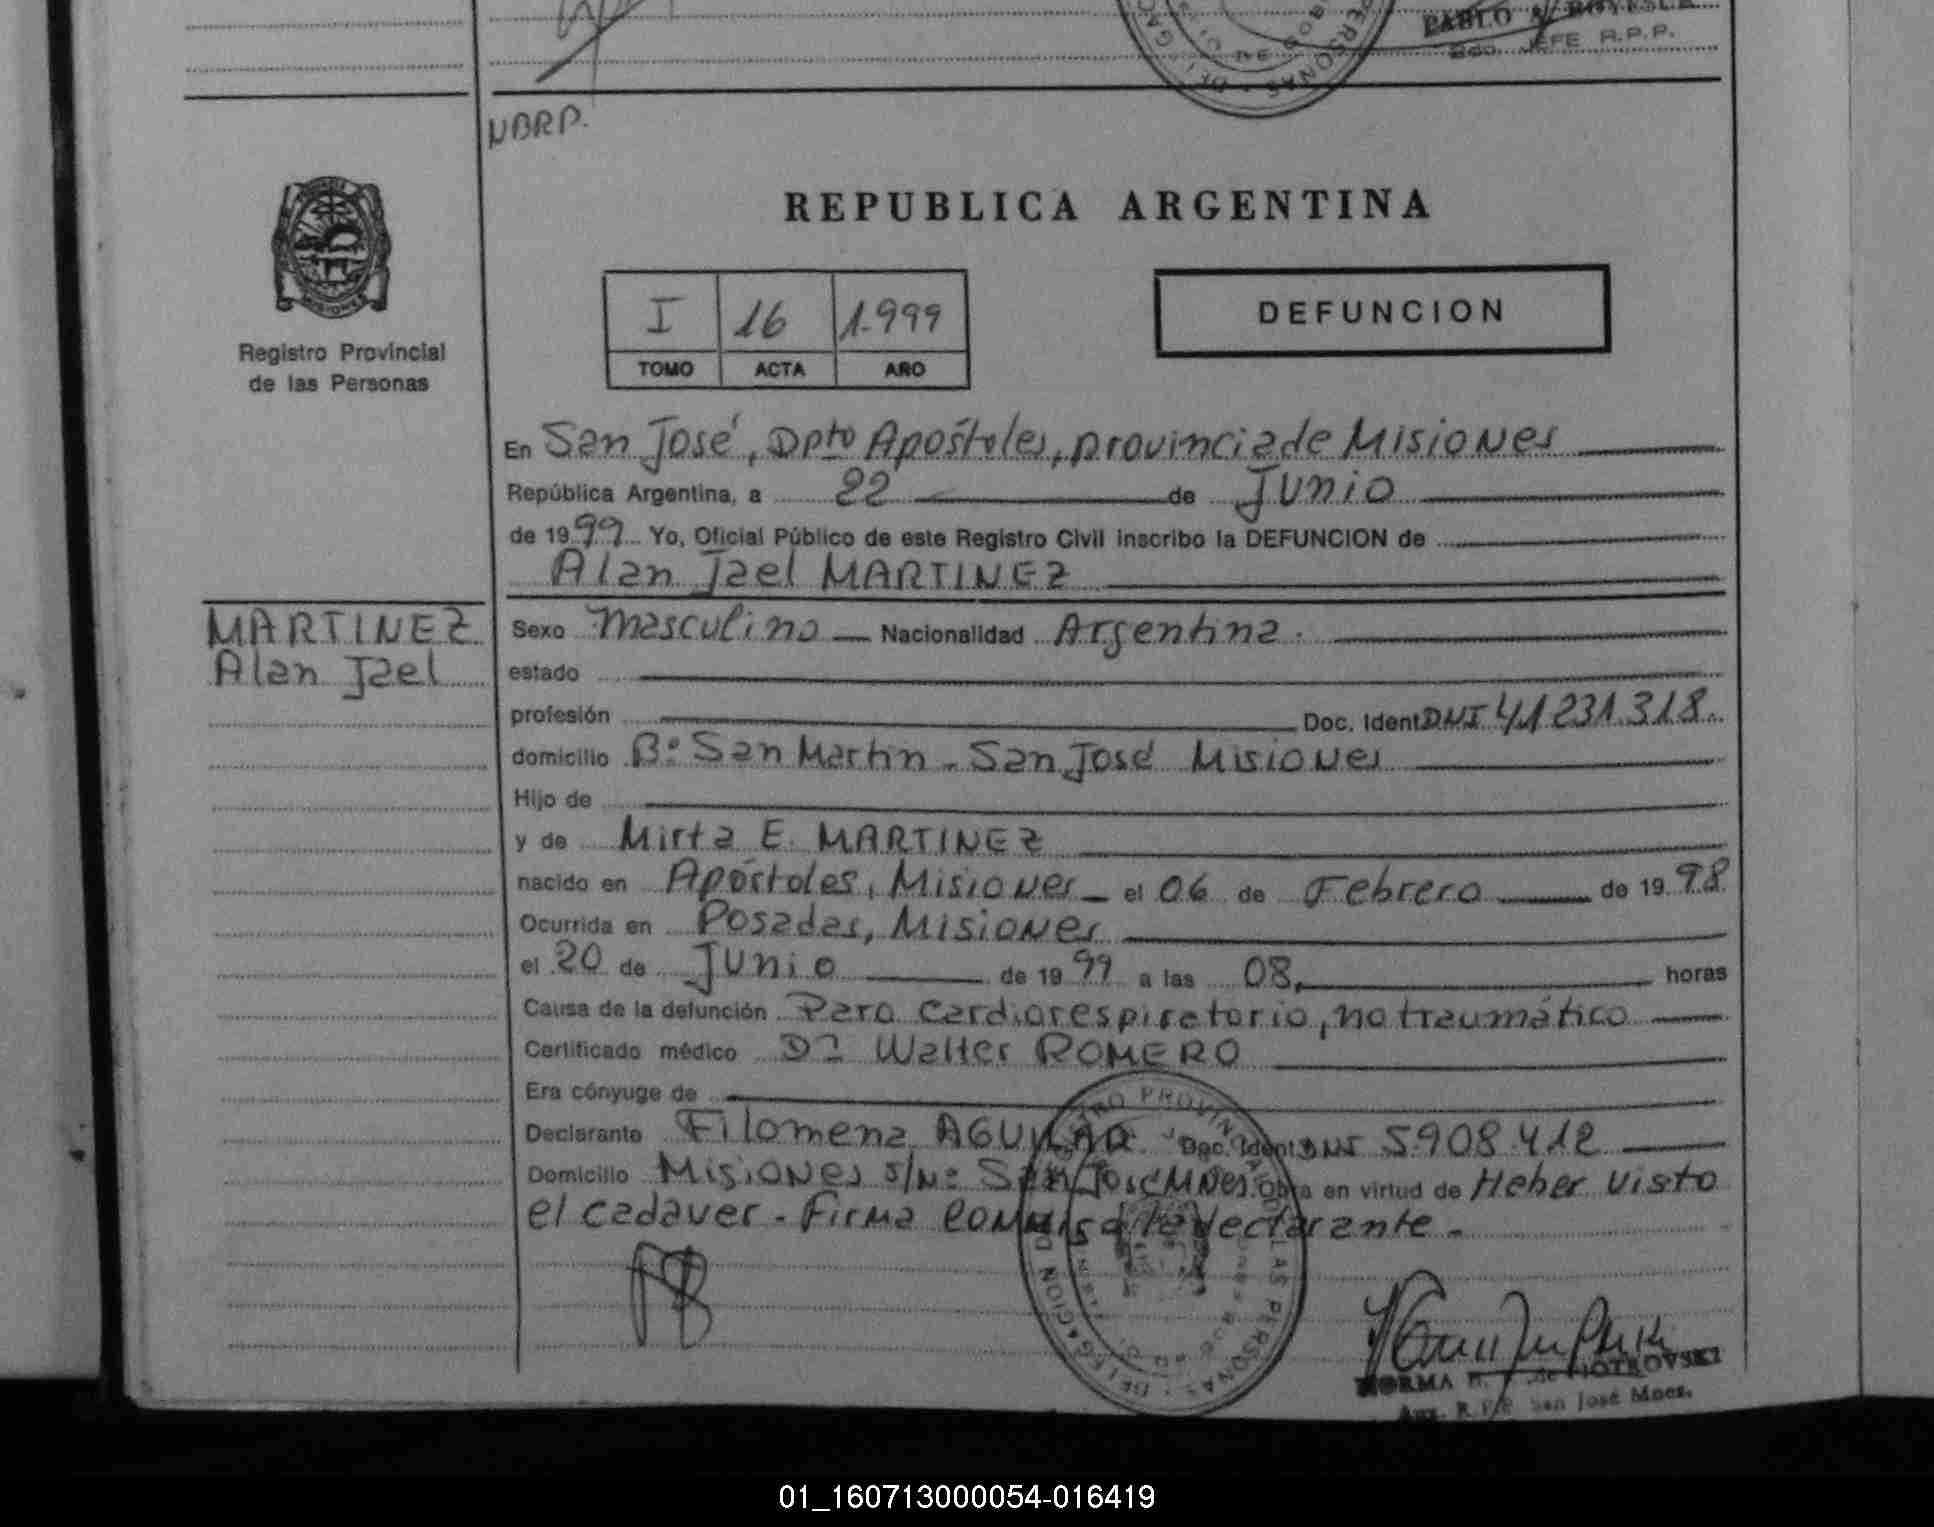 PABLO A.
Bdo. JEFE R.P.P.
NBRP.
REPUBLICA ARGENTINA
I 16 1.999
TOMO ACTA AÑO
DEFUNCION
Registro Provincial
de las Personas
MARTINEZ
Alan Jael
En San José, Dpto Apóstoles, provincia de Misiones
República Argentina, a 22 de Junio
de 1999 Yo, Oficial Público de este Registro Civil inscribo la DEFUNCION de
Alan Jael MARTINEZ
Sexo Masculino Nacionalidad Argentina.
estado
profesión Doc. Ident DNI 41231.318.
domicilio Bº San Martin - San José Misiones
Hijo de
y de Mirta E. MARTINEZ
nacido en Apóstoles, Misiones el 06 de Febrero de 1998
Ocurrida en Posadas, Misiones
el 20 de Junio de 1999 a las 08, horas
Causa de la defunción Paro cardiorespiratorio, no traumático
Certificado médico Dr Walter ROMERO
Era cónyuge de
Declarante Filomena AGUILAR Doc. Ident DNI 5.908.412
Domicilio Misiones s/Nº San José MNes. Obra en virtud de Heber visto
el cadaver - Firma conmigo la declarante -
NORMA de PIOTROVSKI
Aux. R.P.P. San José Mnes.
01_160713000054-016419